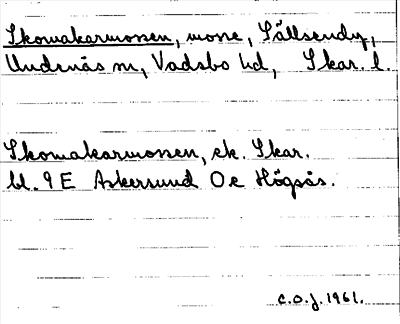 Skomakarmossen, mosse, Sällsendy,
Undenäs sn, Vadsbo hd, Skar. l.
Skomakarmossen, ek. Skar.
bl. 9 E Askersund Oe Högsås.
C.O.J. 1961.